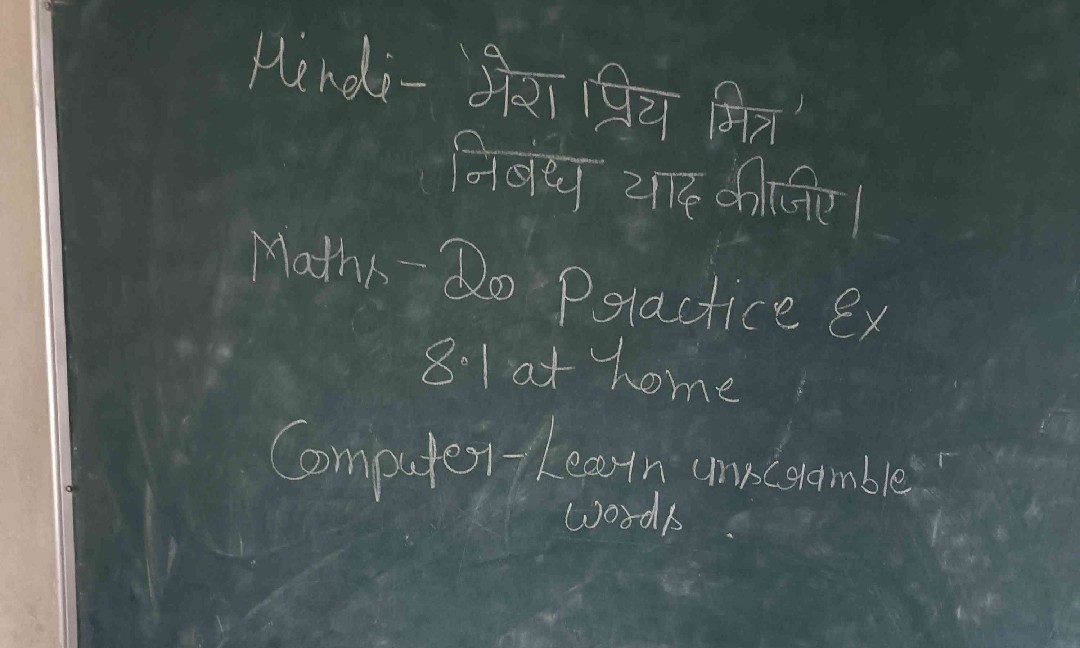 Hindi - 'मेरा प्रिय मित्र'
निबंध याद कीजिए।
Maths - Do Practice Ex
8.1 at home
Computer - Learn unscramble
words